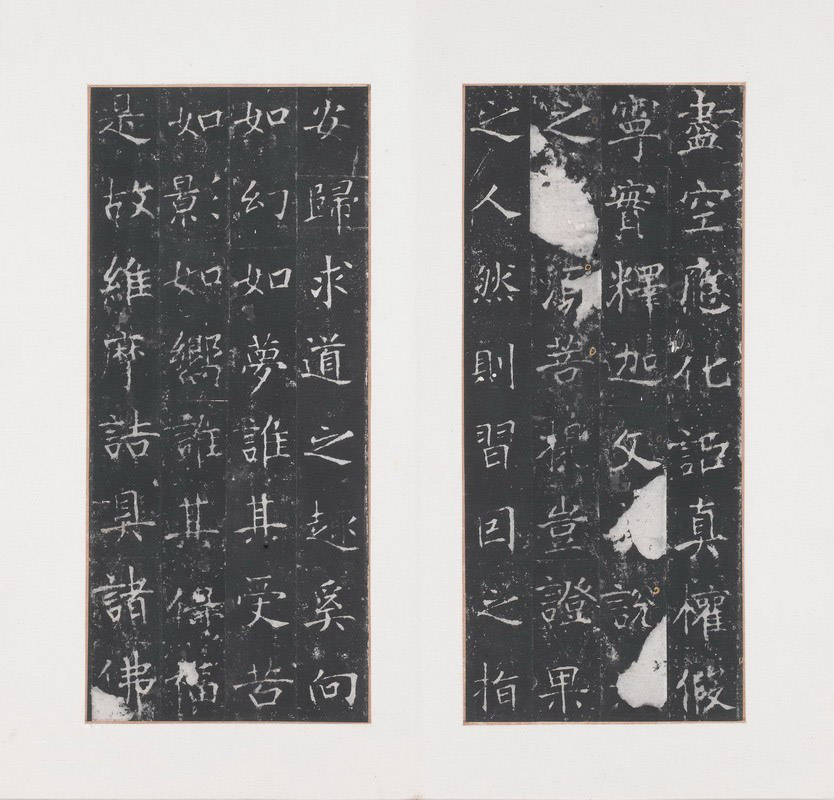 盡空應化詎真權假
寧實釋迦文說
之源菩提豈證果
之人然則習因之指
安歸求道之趣奚向
如幻如夢誰其受苦
如影如嚮誰其保福
是故維摩詰具諸佛